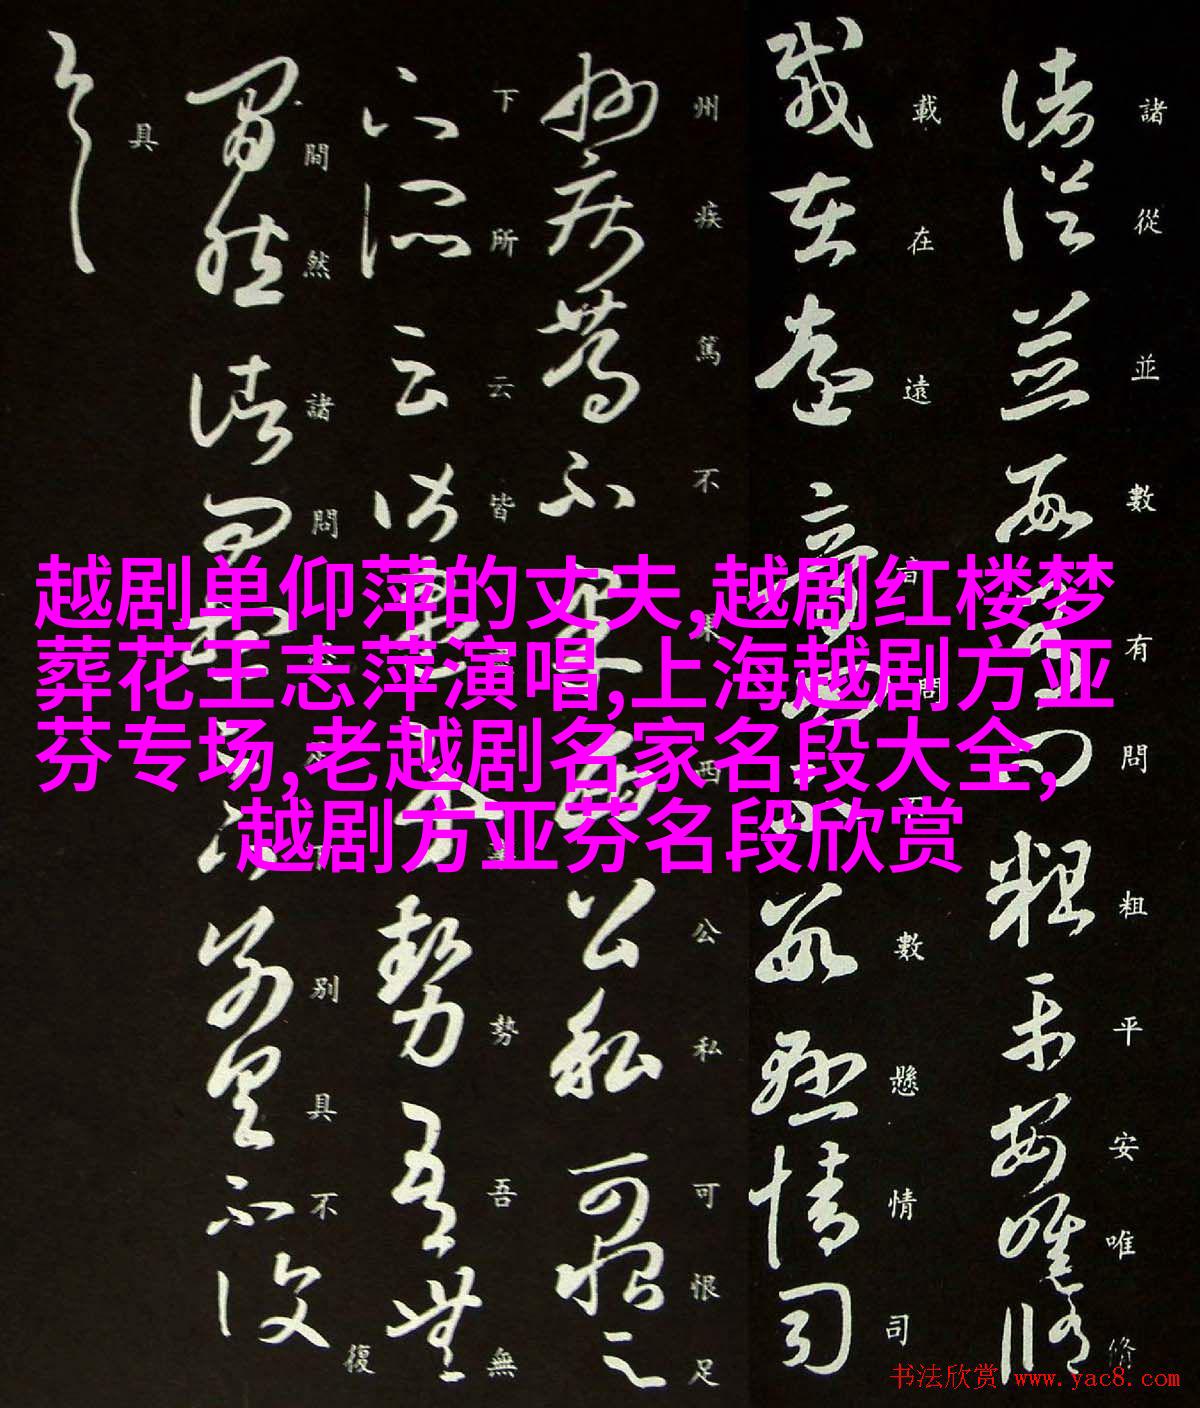 諸從並數有問粗平安唯脩
載在遠音問不數懸情司
州疾篤不果西公私可恨足
下所云皆事勢吾無
間然諸問足下別具不復
具
越剧单仰萍的丈夫,越剧红楼梦
葬花王志萍演唱,上海越剧方亚
芬专场,老越剧名家名段大全,
越剧方亚芬名段欣赏
书法欣赏 www.yac8.com